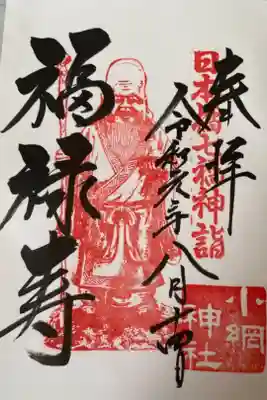 奉拝
日本橋七福神詣
令和元年八月
福禄寿
小網
神社